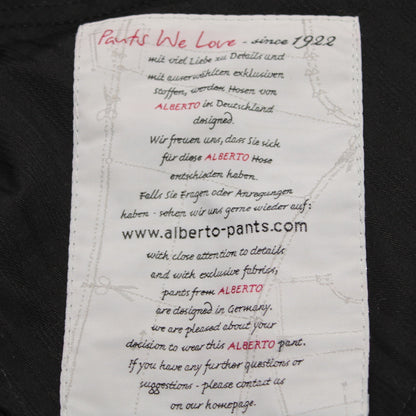 Pants We Love - since 1922
mit viel Liebe zu Details und
mit auserwählten exklusiven
stoffen, werden Hosen von
ALBERTO in Deutschland
designed.
Wir freuen uns, dass Sie sich
für diese ALBERTO Hose
entschieden haben.
Falls Sie Fragen oder Anregungen
haben - sehen wir uns gerne wieder auf:
www.alberto-pants.com
with close attention to details
and with exclusive fabrics,
pants from ALBERTO
are designed in Germany.
we are pleased about your
decision to wear this ALBERTO pant.
If you have any further questions or
suggestions - please contact us
on our homepage.